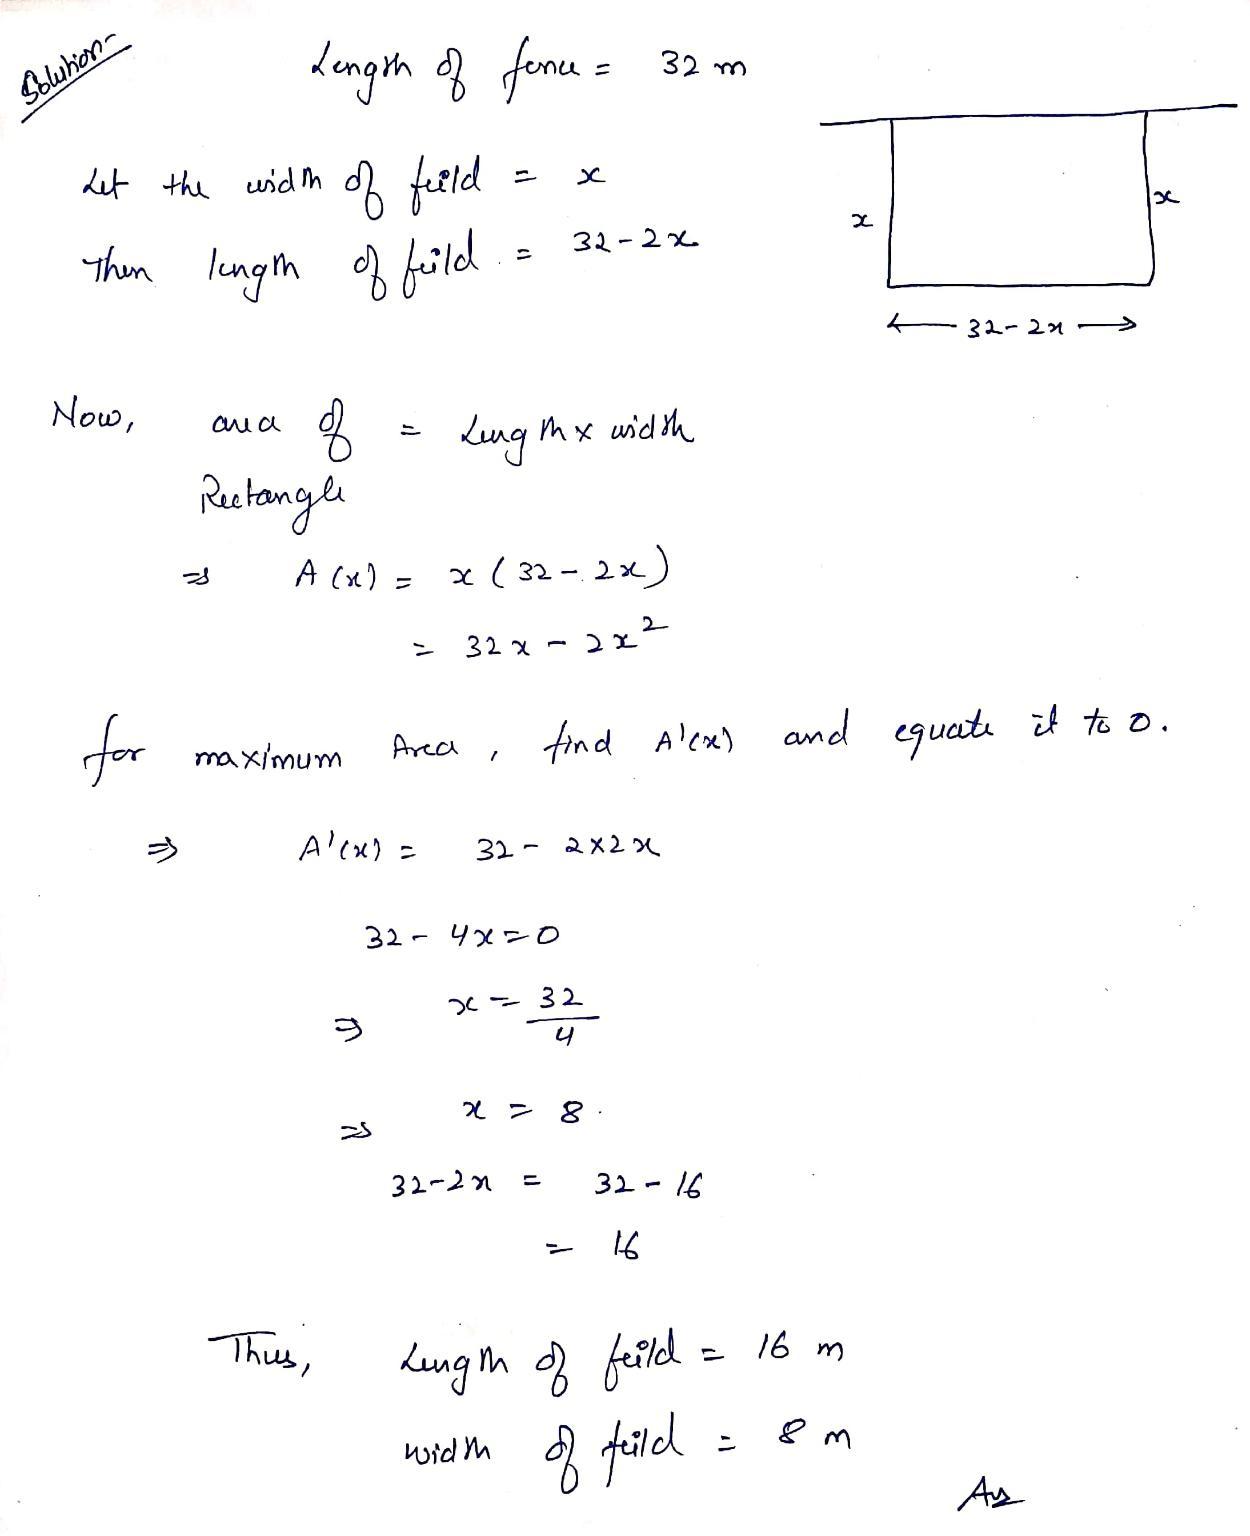 Solution-
Length of fence = 32 m
Let the width of feild = x
Then length of feild = 32-2x
x
x
32-2x
Now, area of = Length x width
Rectangle
⇒ A(x) = x(32-2x)
= 32x - 2x²
for maximum Area, find A'(x) and equate it to 0.
⇒ A'(x) = 32 - 2×2x
32 - 4x = 0
⇒ x = 32/4
⇒ x = 8.
32-2x = 32-16
= 16
Thus, Length of feild = 16 m
width of feild = 8 m
Ans